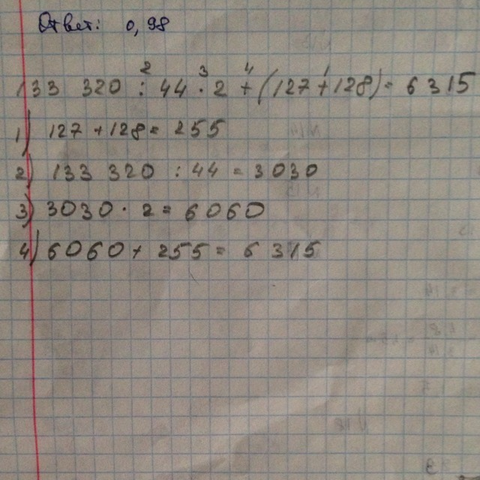 Ответ: 0,98
133 320 : 44 · 2 + (127 + 128) = 6315
1) 127 + 128 = 255
2) 133 320 : 44 = 3030
3) 3030 · 2 = 6060
4) 6060 + 255 = 6315